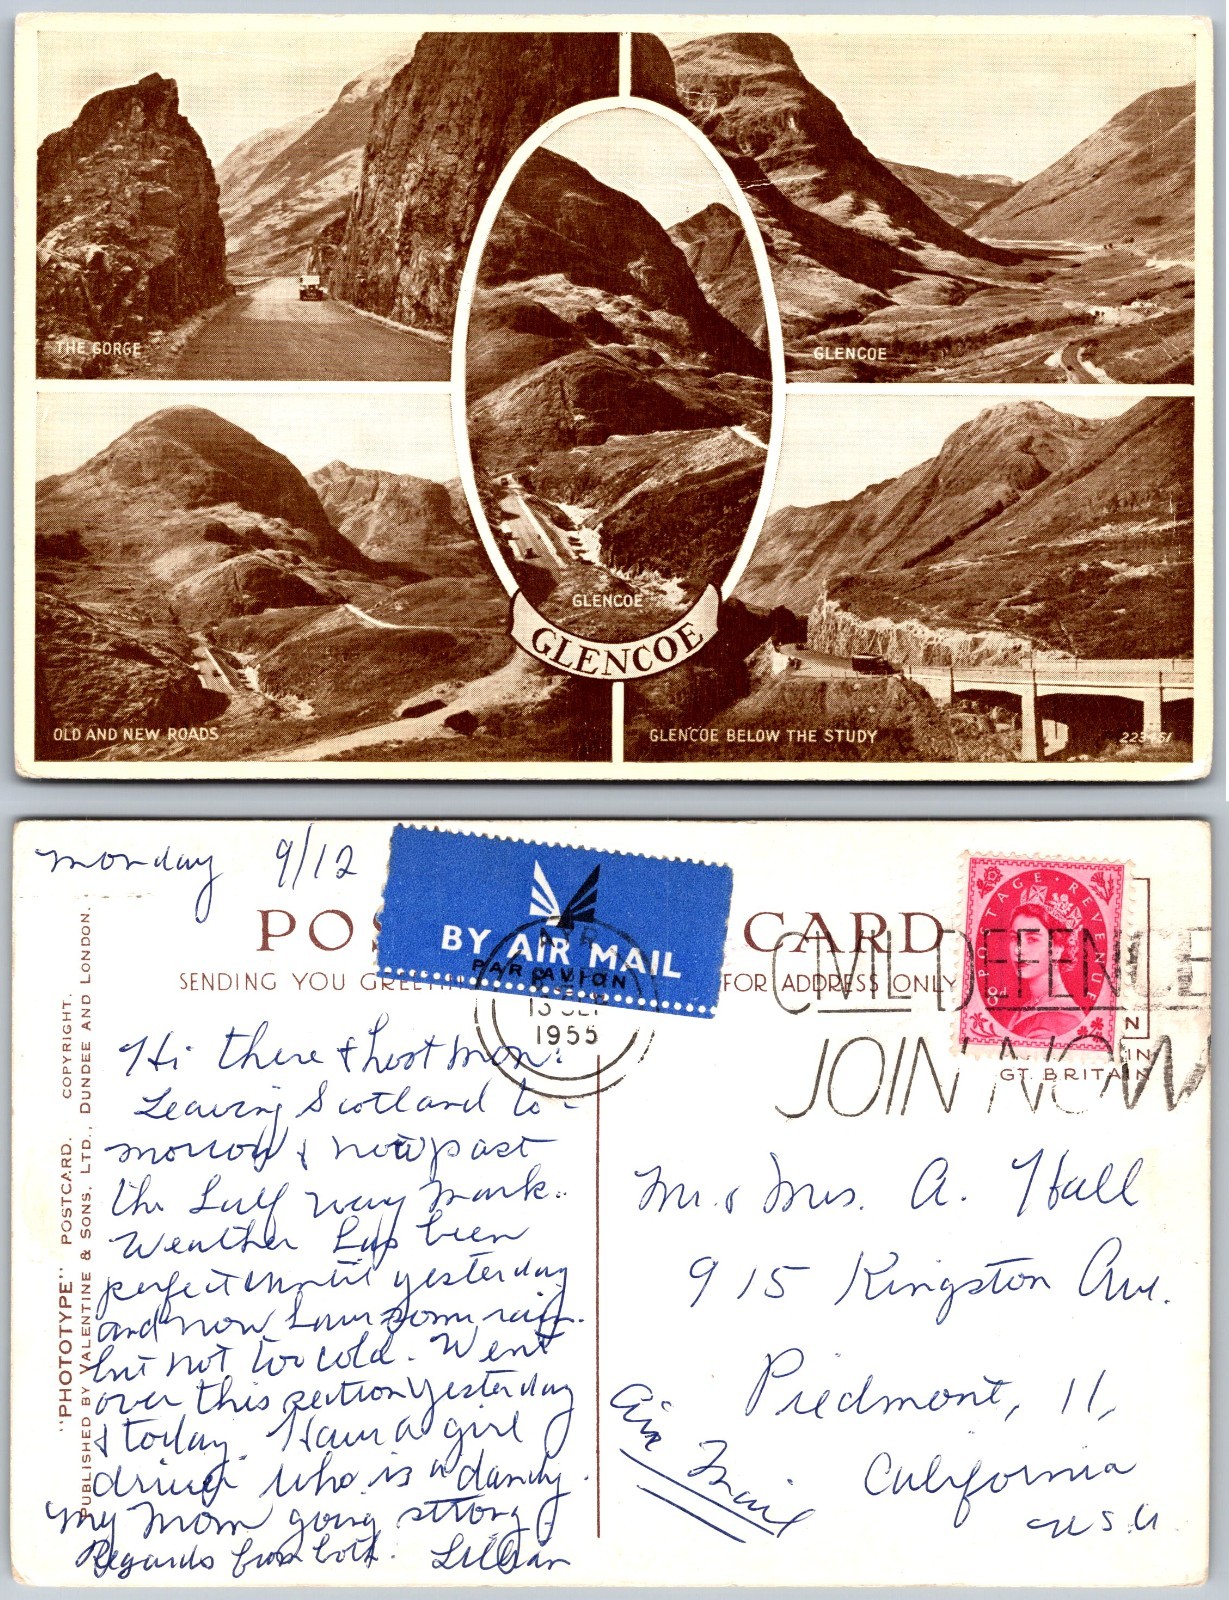 THE GORGE
GLENCOE
GLENCOE
GLENCOE
OLD AND NEW ROADS
GLENCOE BELOW THE STUDY
monday 9/12
POS CARD
SENDING YOU GREETIN FOR ADDRESS ONLY
BY AIR MAIL
PAR AVION
13 SEP
1955
POSTAGE REVENUE
8d
CIVIL DEFENCE
JOIN NOW
N
IN
GT. BRITAIN
"PHOTOTYPE" POSTCARD. COPYRIGHT.
PUBLISHED BY VALENTINE & SONS, LTD., DUNDEE AND LONDON.
Hi there & host mon:
Leaving Scotland to-
morrow & now past
the half way mark..
Weather has been
perfect until yesterday
and now have some rain.
but not too cold. Went
over this section yesterday
& today. Have a girl
driver who is a dandy.
My Mom going strong
Regards from both. Lillian
Mr. & Mrs. A. Hall
915 Kingston Ave.
Piedmont, 11,
California
U.S.A
Air Mail